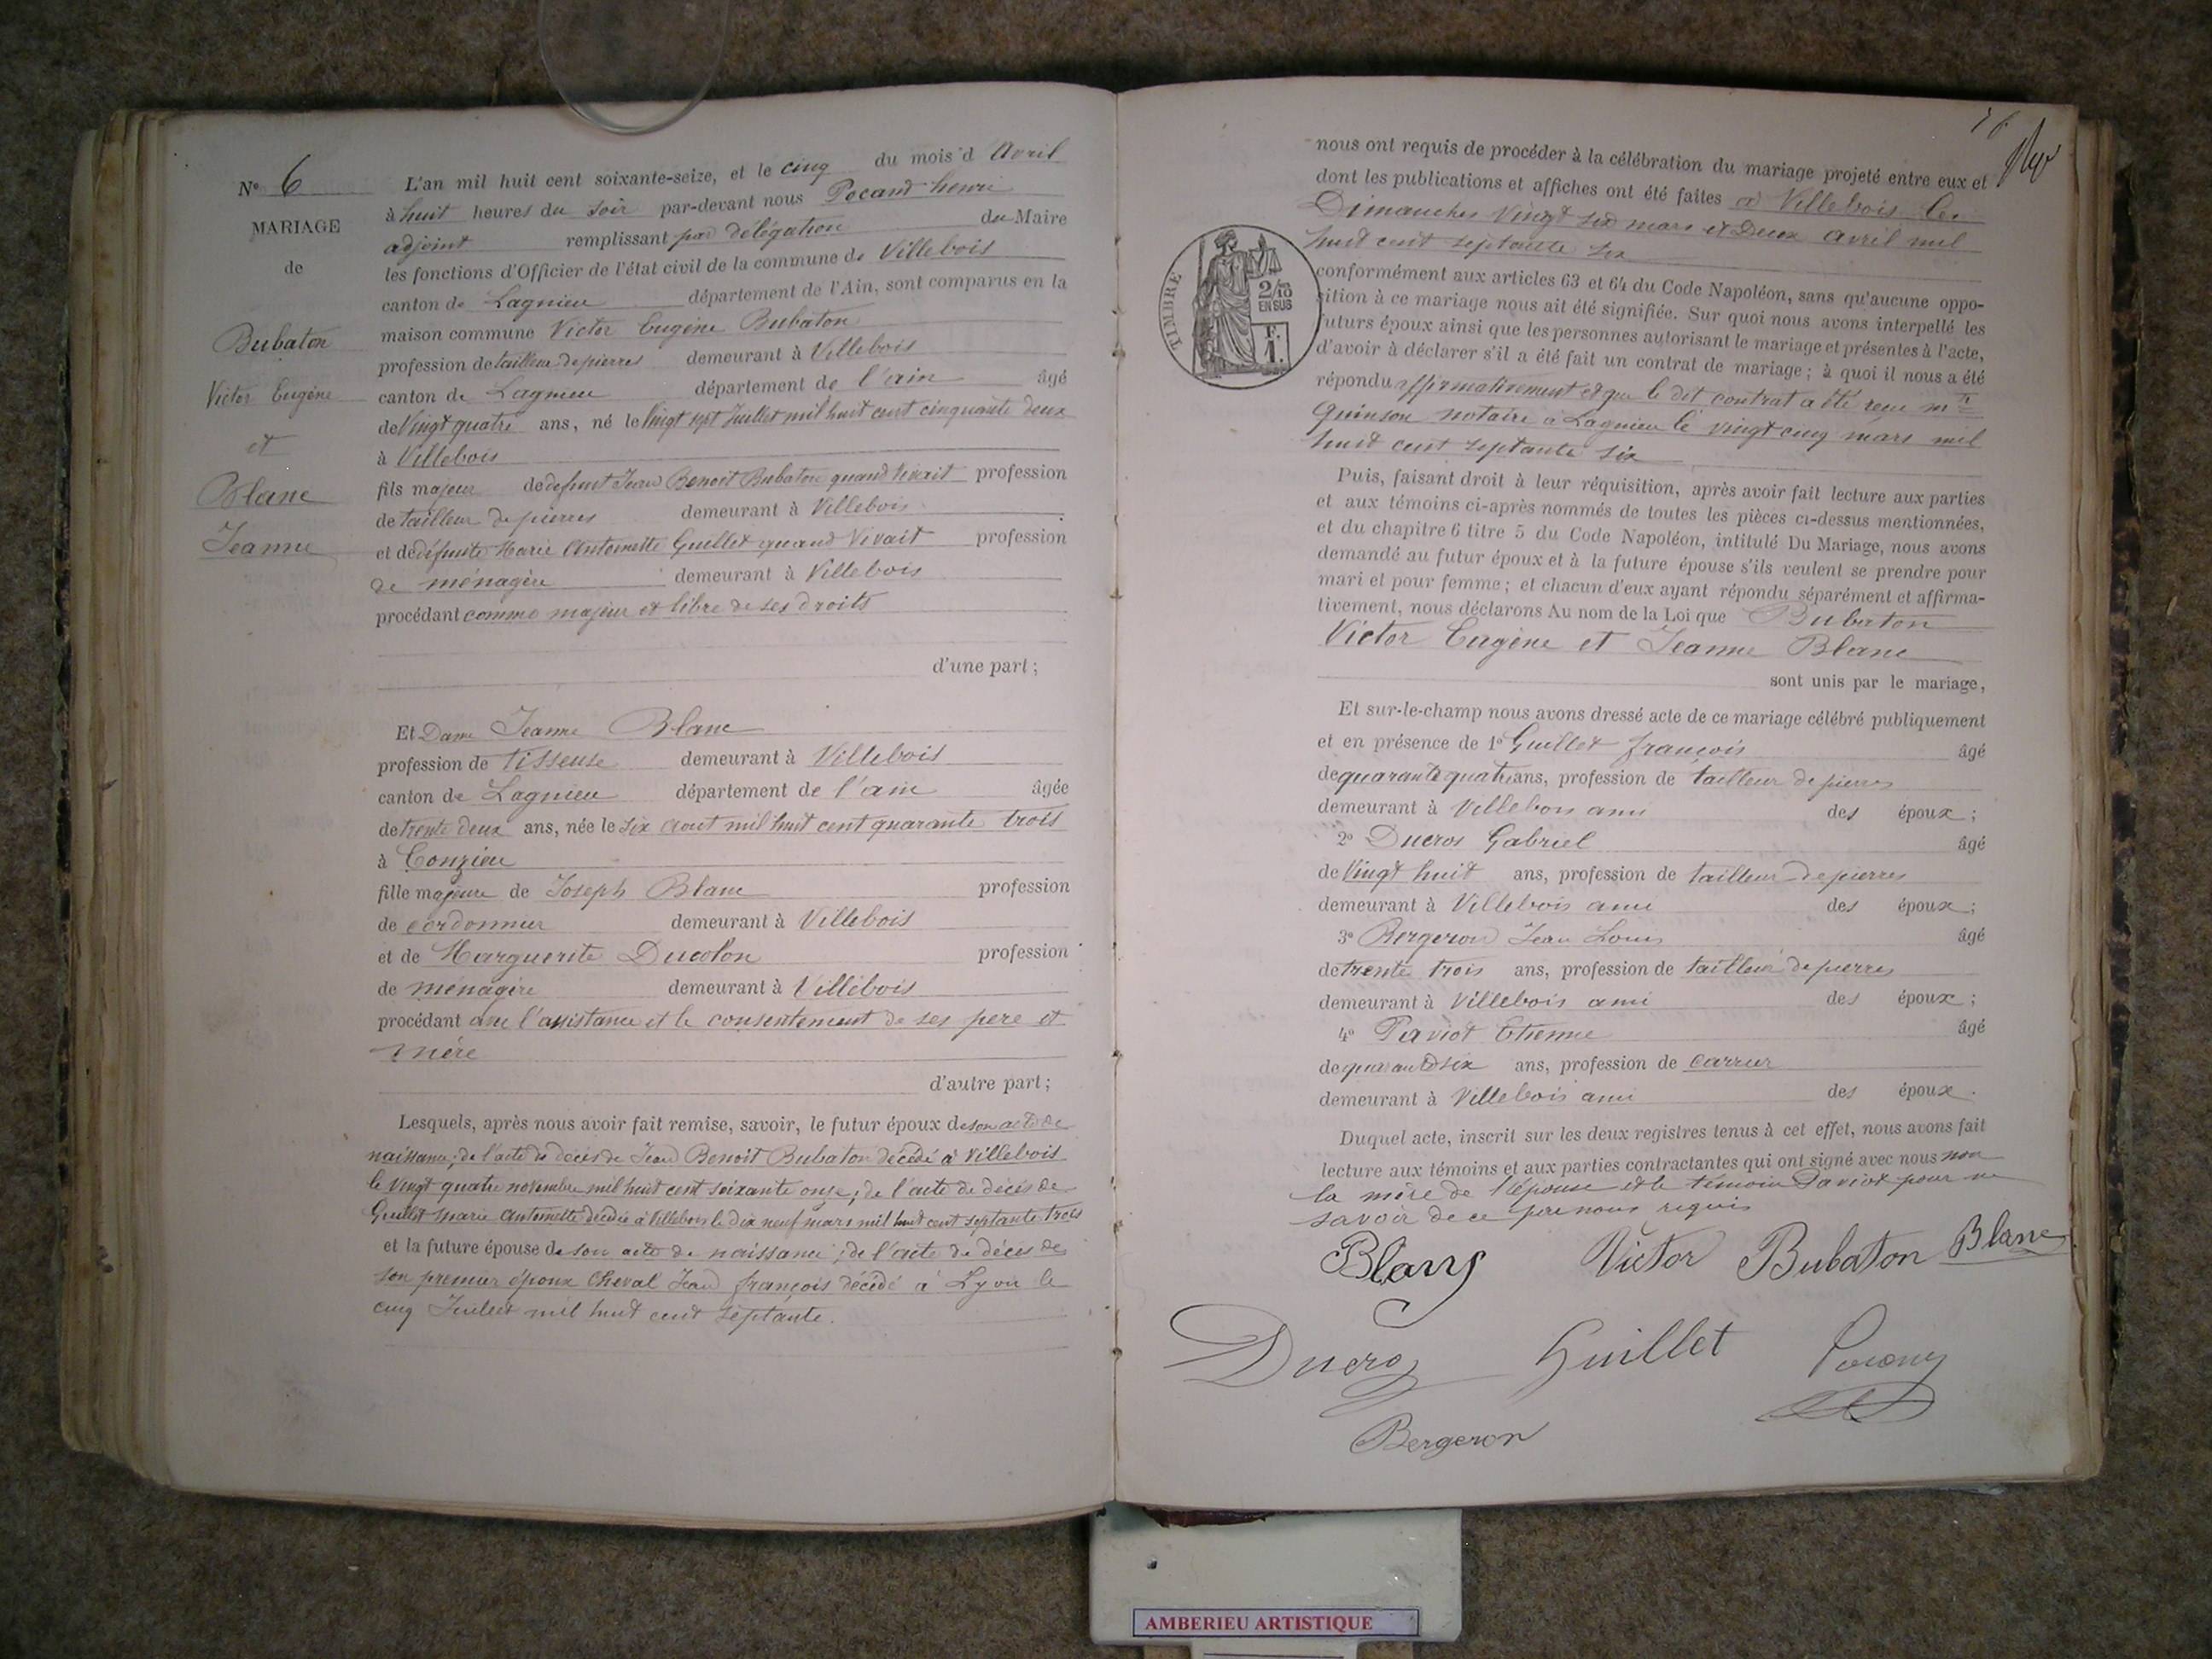 Nº 6
MARIAGE
de
Bubaton
Victor Eugène
et
Blanc
Jeanne
L'an mil huit cent soixante-seize, et le cinq du mois d'Avril
à huit heures du soir par-devant nous Pocand henri
adjoint remplissant par délégation du Maire
les fonctions d'Officier de l'état civil de la commune de Villebois
canton de Lagnieu département de l'Ain, sont comparus en la
maison commune Victor Eugène Bubaton
profession de tailleur de pierres demeurant à Villebois
canton de Lagnieu département de l'ain âgé
de Vingt quatre ans, né le Vingt sept Juillet mil huit cent cinquante deux
à Villebois
fils majeur de defunt Jean Benoit Bubaton quand Vivait profession
de tailleur de pierres demeurant à Villebois
et de défunte Marie Antoinette Guillet quand Vivait profession
de ménagère demeurant à Villebois
procédant comme majeur et libre de ses droits
d'une part ;
Et Dame Jeanne Blanc
profession de tisseuse demeurant à Villebois
canton de Lagnieu département de l'ain âgée
de trente deux ans, née le six aout mil huit cent quarante trois
à Conzieu
fille majeure de Joseph Blanc profession
de cordonnier demeurant à Villebois
et de Marguerite Ducolon profession
de ménagère demeurant à Villebois
procédant avec l'assistance et le consentement de ses pere et
mère
d'autre part ;
Lesquels, après nous avoir fait remise, savoir, le futur époux de son acte de
naissance ; de l'acte de décès de Jean Benoit Bubaton décédé à Villebois
le vingt quatre novembre mil huit cent soixante onze ; de l'acte de décès de
Guillet Marie Antoinette décédée à Villebois le dix neuf mars mil huit cent septante trois
et la future épouse de son acte de naissance ; de l'acte de décès de
son premier époux Cheval Jean françois décédé à Lyon le
cinq Juillet mil huit cent septante.
nous ont requis de procéder à la célébration du mariage projeté entre eux et
dont les publications et affiches ont été faites à Villebois les
Dimanches Vingt six mars et Deux avril mil
huit cent septante six
TIMBRE
2/10
EN SUS
F.
1.
conformément aux articles 63 et 64 du Code Napoléon, sans qu'aucune oppo-
sition à ce mariage nous ait été signifiée. Sur quoi nous avons interpellé les
futurs époux ainsi que les personnes autorisant le mariage et présentes à l'acte,
d'avoir à déclarer s'il a été fait un contrat de mariage ; à quoi il nous a été
répondu affirmativement et que le dit contrat a été reçu me
Quinson notaire à Lagnieu le vingt cinq mars mil
huit cent septante six
Puis, faisant droit à leur réquisition, après avoir fait lecture aux parties
et aux témoins ci-après nommés de toutes les pièces ci-dessus mentionnées,
et du chapitre 6 titre 5 du Code Napoléon, intitulé Du Mariage, nous avons
demandé au futur époux et à la future épouse s'ils veulent se prendre pour
mari et pour femme ; et chacun d'eux ayant répondu séparément et affirma-
tivement, nous déclarons Au nom de la Loi que Bubaton
Victor Eugène et Jeanne Blanc
sont unis par le mariage,
Et sur-le-champ nous avons dressé acte de ce mariage célébré publiquement
et en présence de 1º Guillet françois âgé
de quarante quatre ans, profession de tailleur de pierres
demeurant à Villebois ami des époux ;
2º Ducros Gabriel âgé
de Vingt huit ans, profession de tailleur de pierres
demeurant à Villebois ami des époux ;
3º Bergeron Jean Louis âgé
de trente trois ans, profession de tailleur de pierres
demeurant à Villebois ami des époux ;
4º Paviot Etienne âgé
de quarante six ans, profession de carrier
demeurant à Villebois ami des époux.
Duquel acte, inscrit sur les deux registres tenus à cet effet, nous avons fait
lecture aux témoins et aux parties contractantes qui ont signé avec nous non
la mère de l'épouse et le témoin Paviot pour ne
savoir de ce requis
Blanc Victor Bubaton Blanc
Ducros Guillet
Bergeron
AMBERIEU ARTISTIQUE